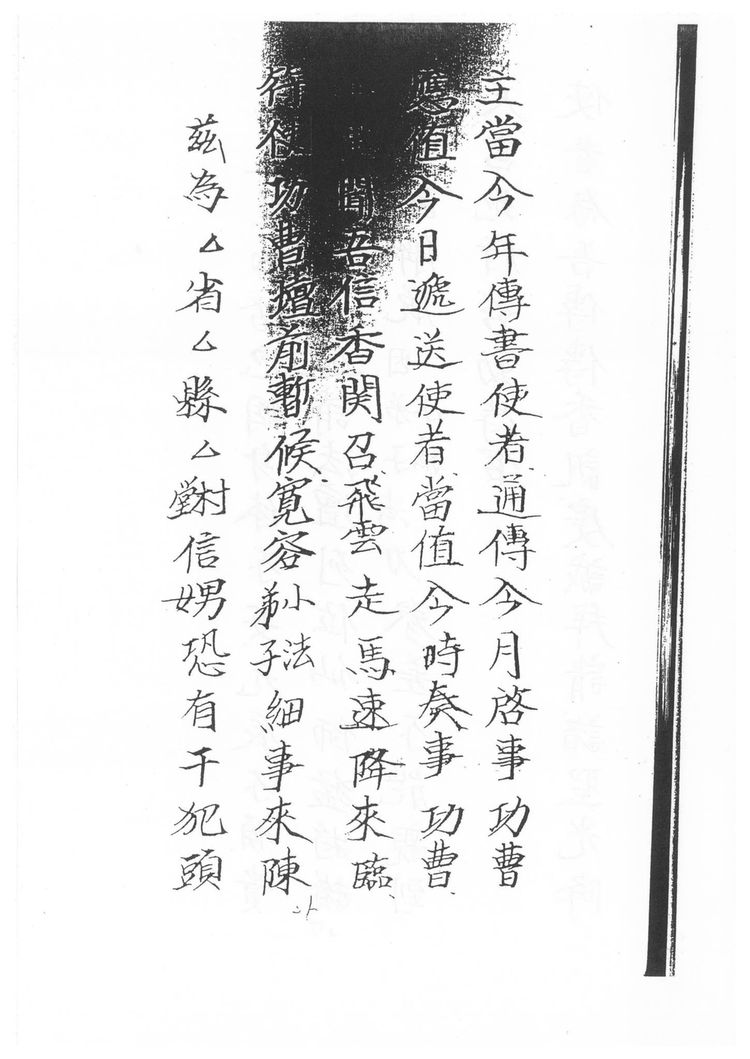 主當今年傳書使者通傳今月啓事功曹
應值今日遞送使者當值今時奏事功曹
聞吾信香関召飛雲走馬速降來臨
符使功曹壇前暫候寬容小法弟子細事來陳
茲為厶省厶縣厶村堂信娚恐有干犯頭